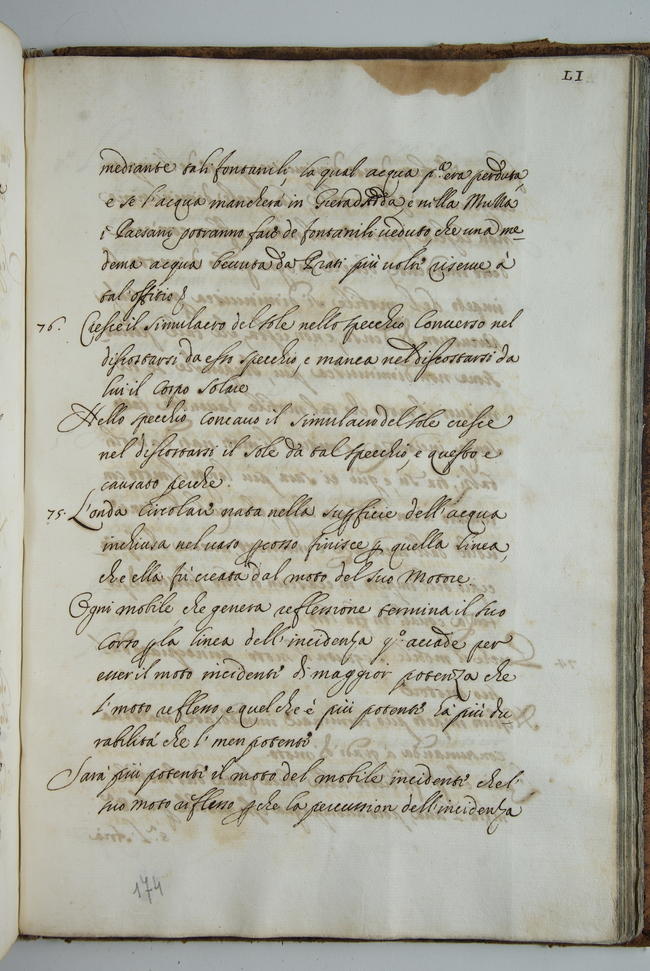 LI
mediante tali fontanili, la qual acqua p.ᵃ era perduta,
e se l'acqua mancherà in Gieradadda e nilla Mulla
i Paesani potranno fare de fontanili veduto, che una me=
dema acqua bevuta da Prati più volte riserve à
tal offitio
76. Cresce il simulacro del sole nello specchio Converso nel
discostarsi da esso specchio, e manca nel discostarsi da
lui il Corpo Solare
Nello specchio concavo il simulacro del sole cresce
nel discostarsi il sole da tal specchio, e questo e
causato perche.
75. L'onda Circolare nata nella supficie dell'acqua
inchiusa nel vaso pcosso finisce p quella linea,
che ella fù creata dal moto del suo Motore
Ogni mobile che genera reflessione termina il suo
Corso p la linea dell'incidenza q.º accade per
esser il moto incidente di maggior potenza che
l'moto reflesso e quel che è più potente hà più du=
rabilità che l'men potente
Sarà più potente il moto del mobile incidente che'l
suo moto reflesso pche la percussion dell'incidenza
174